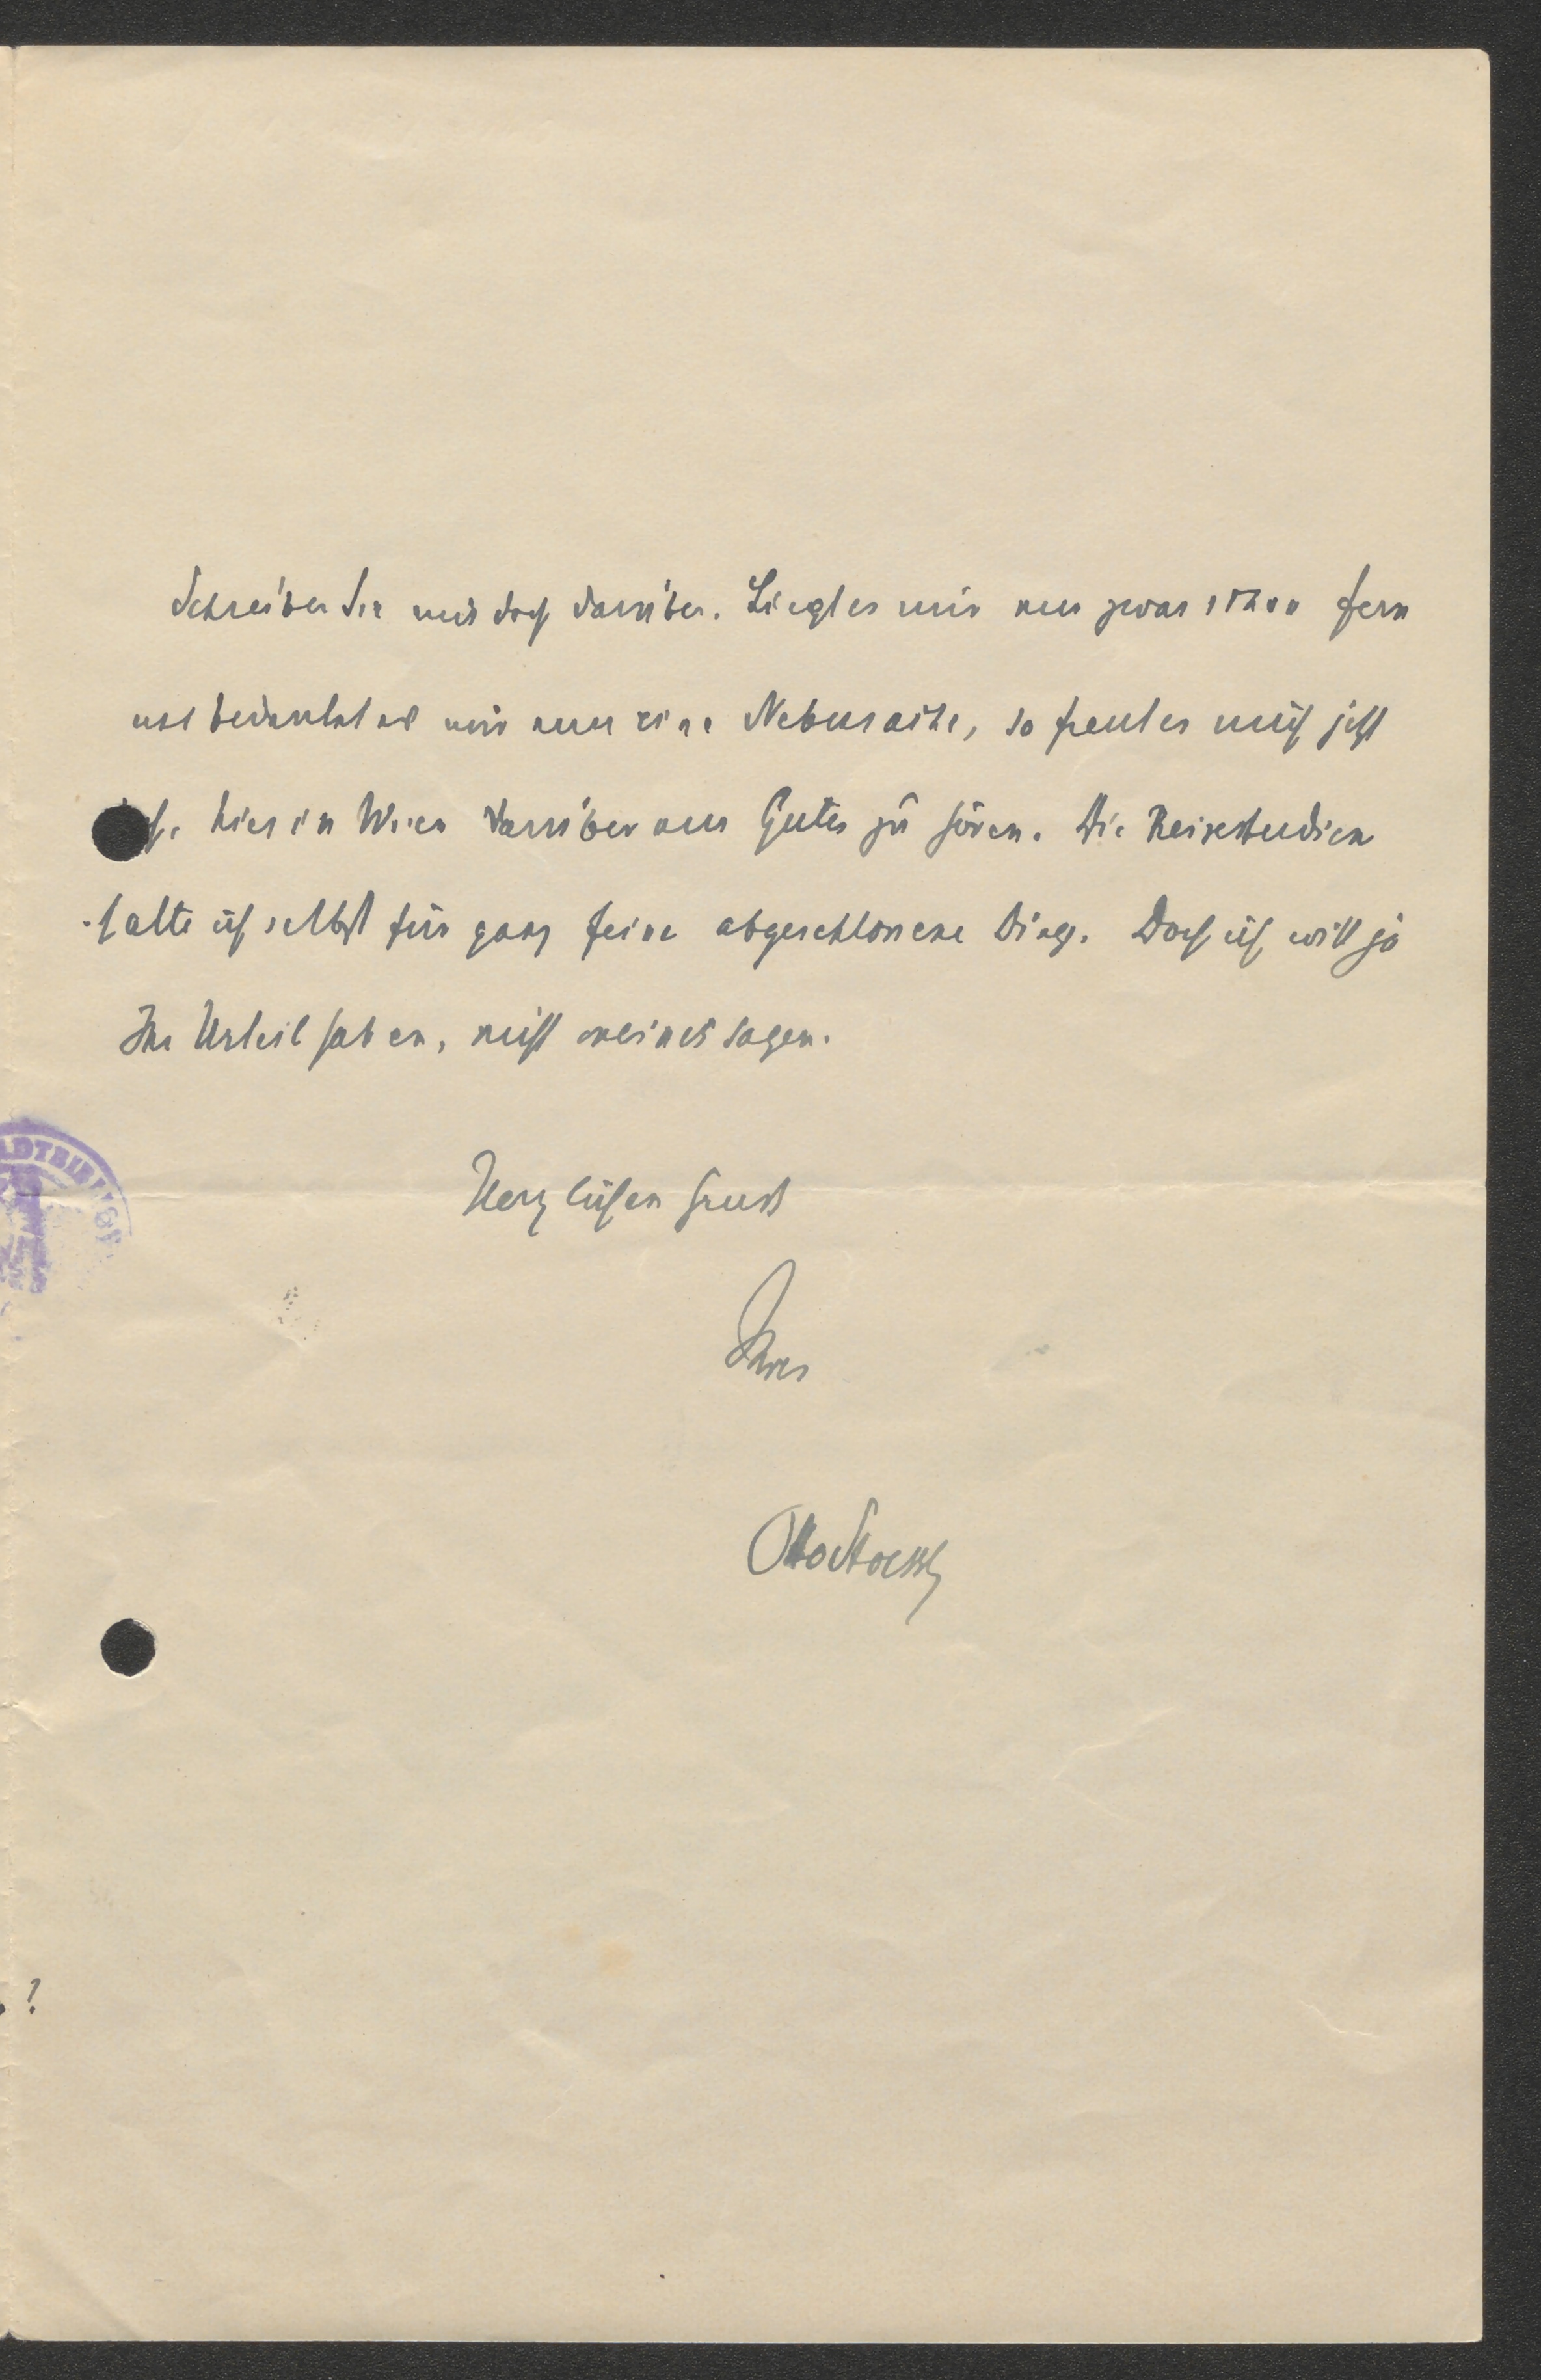 Schreiben Sie mir doch darüber. Liegt es mir nun zwar schon fern
und bedeutet es mir nur eine Nebensache, so freut es mich jetzt
hier in Wien darüber nur Gutes zu hören. Die Reisestudien
halte ich selbst für ganz feine abgeschlossene Dinge. Doch ich will ja
Ihr Urteil haben, nicht meines sagen.
Herzlichen Gruss
Ihres
Otto Stoessl
?